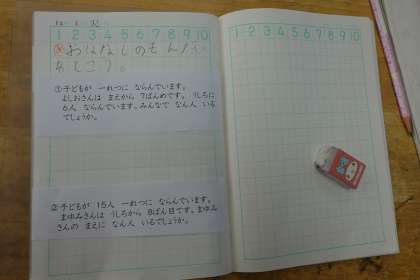 1 2 3 4 5 6 7 8 9 10
おはなしのもんだい
をとこう。
①子どもが 一れつに ならんでいます。
よしおさんは まえから 7ばんめです。 うしろに
6人 ならんでいます。みんなで なん人 いる
でしょうか。
②子どもが 15人 一れつに ならんでいます。
まゆみさんは うしろから 8ばん目です。まゆみ
さんの まえに なん人 いるでしょうか。
1 2 3 4 5 6 7 8 9 10